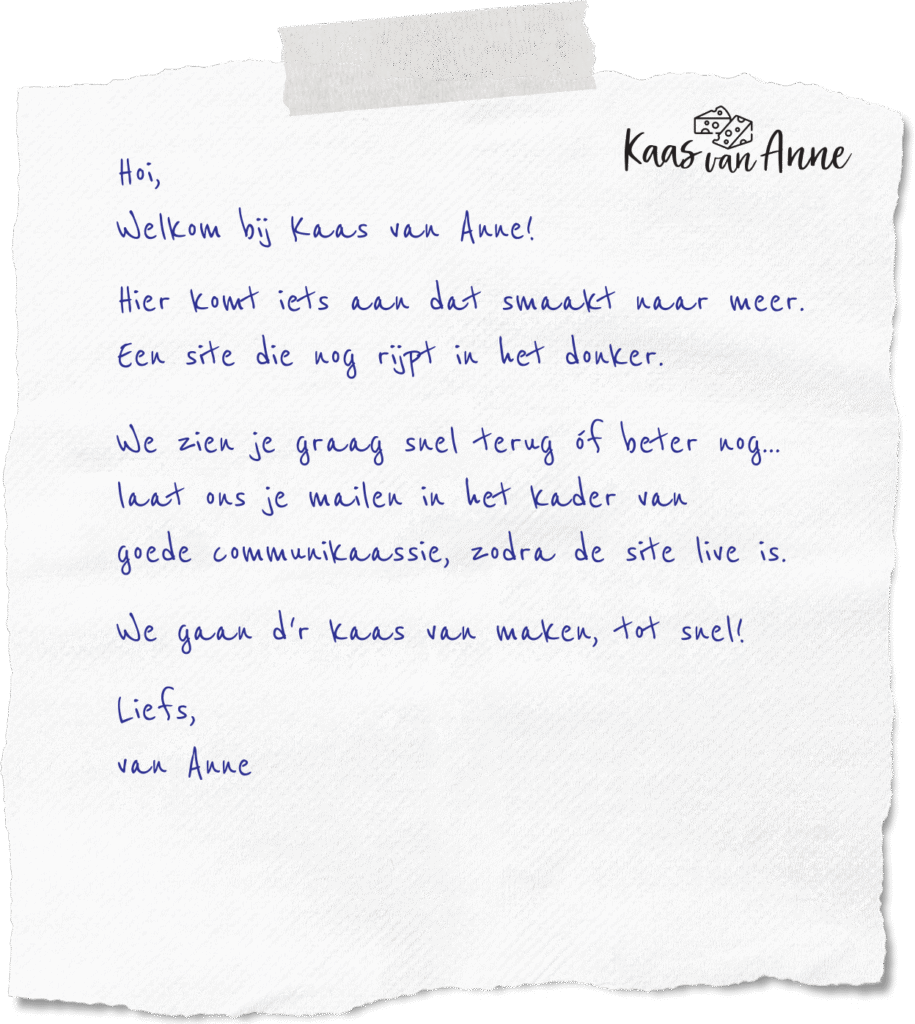 Kaas van Anne
Hoi,
Welkom bij Kaas van Anne!
Hier komt iets aan dat smaakt naar meer.
Een site die nog rijpt in het donker.
We zien je graag snel terug óf beter nog...
laat ons je mailen in het kader van
goede communikaassie, zodra de site live is.
We gaan d'r kaas van maken, tot snel!
Liefs,
van Anne